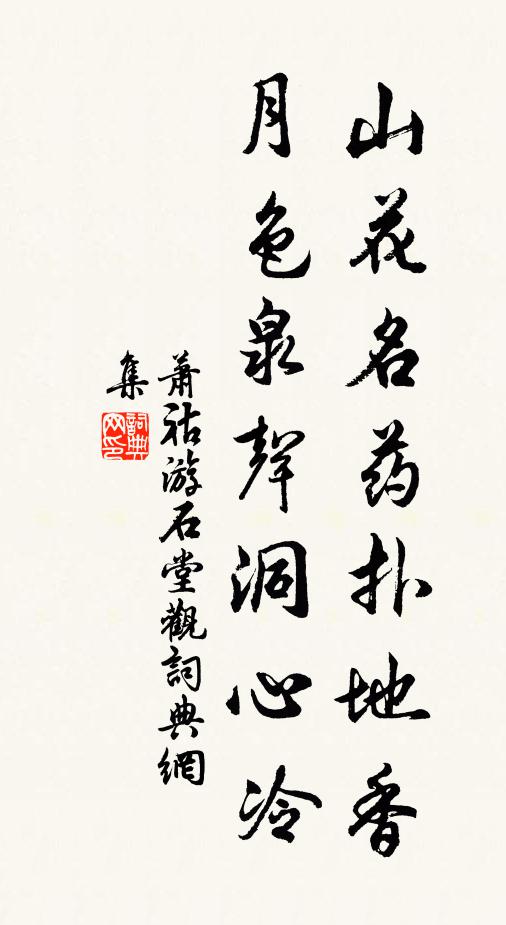 山花名药扑地香
月色泉聲洞心冷
蕭祜游石堂觀詞典網
集
詞典
网印